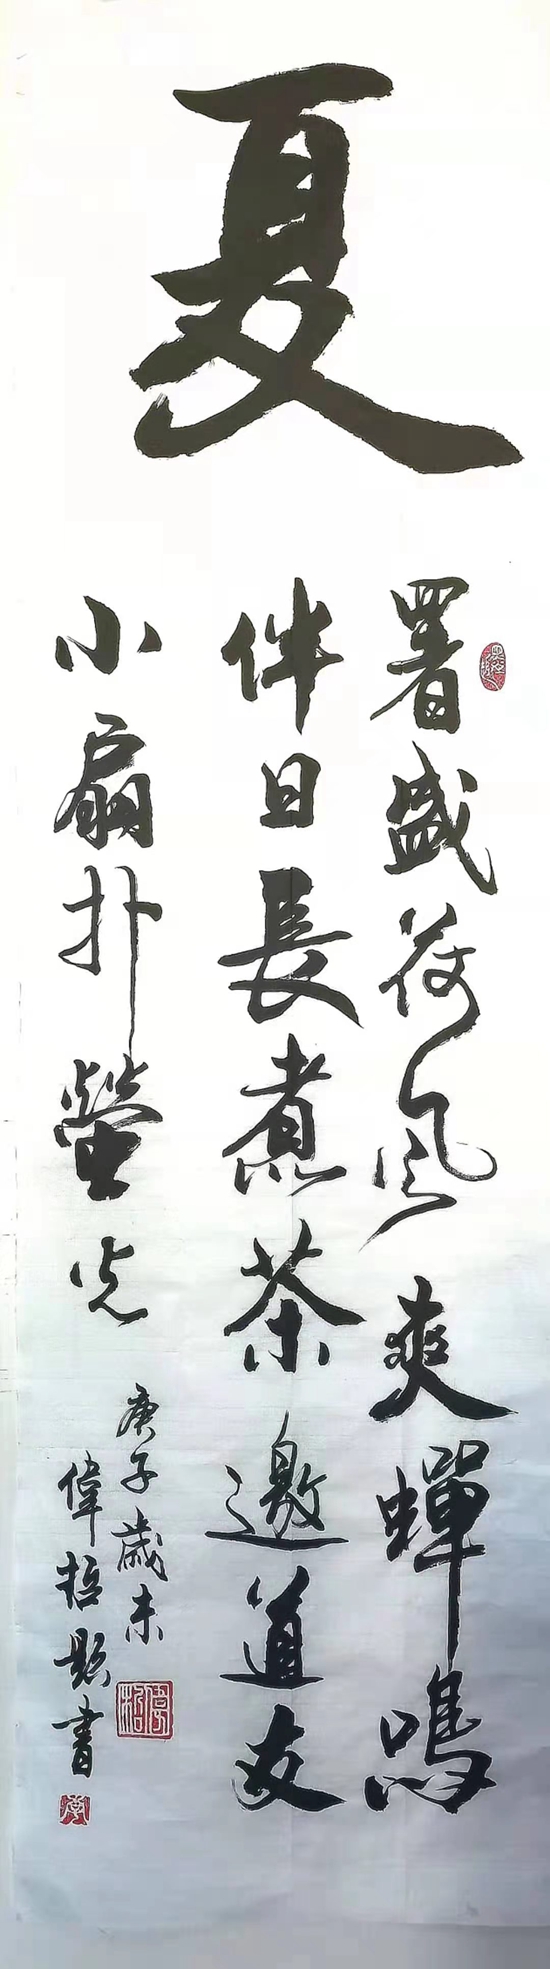 夏
署盛荷风爽蟬鳴
伴日長煮茶邀道友
小扇扑螢光
庚子歲末
偉哲題書
偉哲